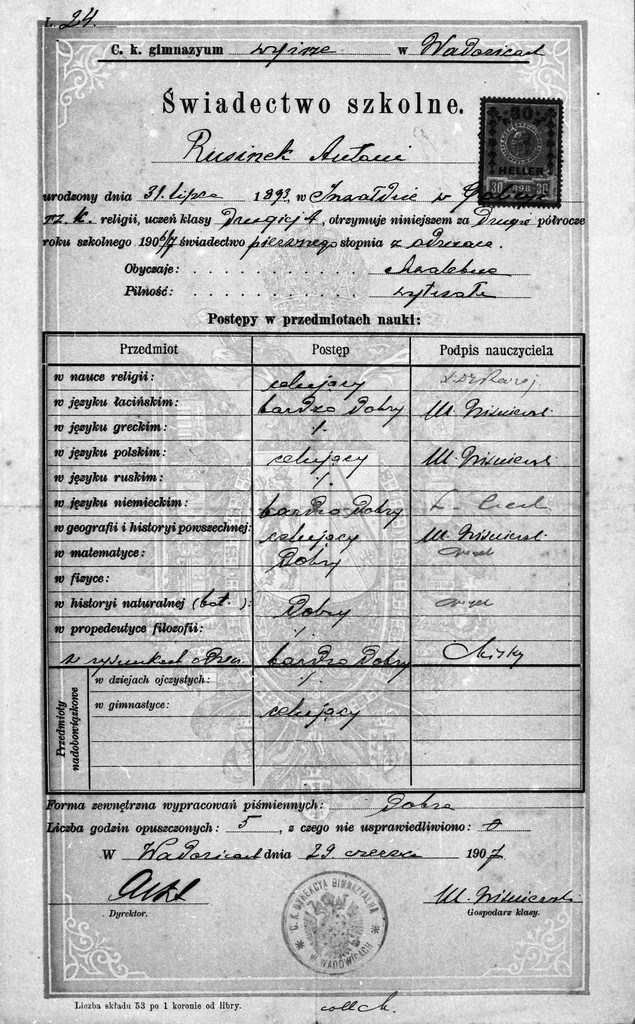 L. 24.
C. k. gimnazyum wyższe w Wadowicach
Świadectwo szkolne.
Rusinek Antoni
30
HELLER
30 898 30
urodzony dnia 31 lipca 1893, w Inwałdzie w Galicyi
rz. k. religii, uczeń klasy drugiej A, otrzymuje niniejszem za drugie półrocze
roku szkolnego 1906/7 świadectwo pierwszego stopnia z odznacz.
Obyczaje: chwalebne
Pilność: wytrwała
Postępy w przedmiotach nauki:
Przedmiot Postęp Podpis nauczyciela
w nauce religii: celujący
w języku łacińskim: bardzo dobry M. Wiśniewski
w języku greckim: ./.
w języku polskim: celujący M. Wiśniewski
w języku ruskim: ./.
w języku niemieckim: bardzo dobry
w geografii i historyi powszechnej: celujący M. Wiśniewski
w matematyce: Dobry
w fizyce:
w historyi naturalnej (bot.): Dobry
w propedeutyce filozofii: ./.
w rysunkach bardzo dobry
Przedmioty nadobowiązkowe
w dziejach ojczystych: ./.
w gimnastyce: celujący
Forma zewnętrzna wypracowań piśmiennych: Dobra
Liczba godzin opuszczonych: 5, z czego nie usprawiedliwiono: 0
W Wadowicach dnia 29 czerwca 1907.
M. Wiśniewski
Dyrektor. Gospodarz klasy.
C. K. DYREKCYA GIMNAZYALNA W WADOWICACH
Liczba składu 53 po 1 koronie od libry.